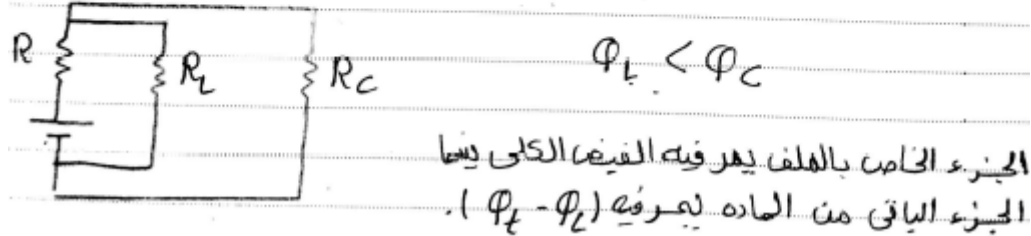 R
R_L
R_C
φ_L < φ_C
الجزء الخاص بالملف يمر فيه الفيض الكلى بينما
الجزء الباقى من الماده يمر فيه (φ_t - φ_L).